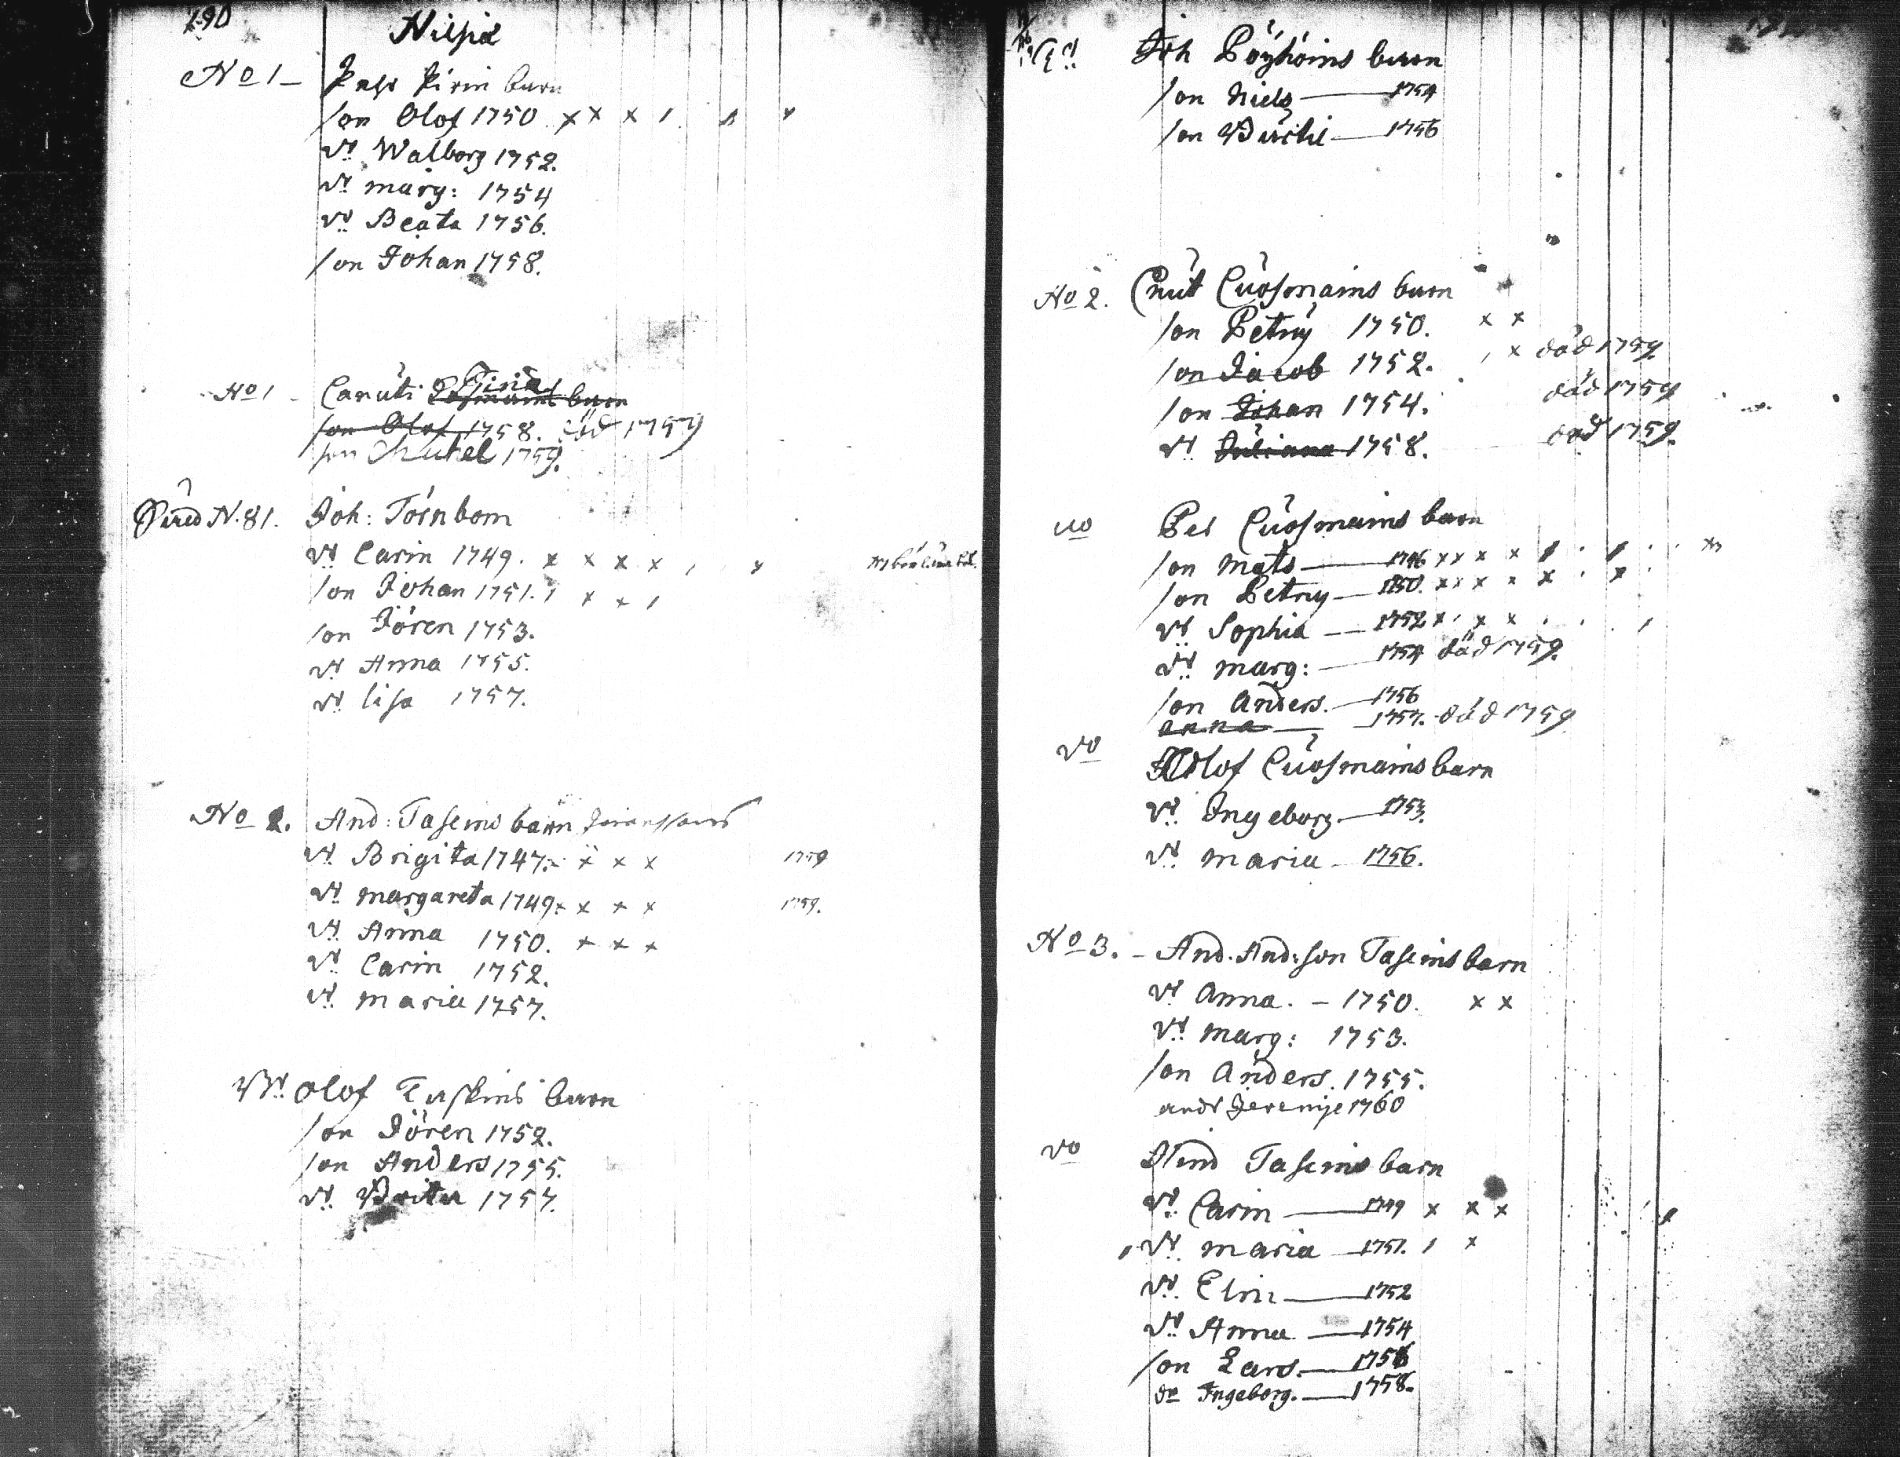 290
Nilsiä
No 1 - Pehr Pirin barn
son Olof 1750 x x x
Dr. Walborg 1752.
Dr. Marg: 1754
Dr. Beata 1756.
son Johan 1758.
No 1 - Canuti barn
son Olof 1758. död 1759
son Michel 1759.
N. 81. Joh: Törnbom
Dr. Carin 1749. x x x x
son Johan 1751. x x
son Jören 1753.
Dr. Anna 1755.
Dr. Lisa 1757.
No 2. And: Taskins barn
Dr. Brigita 1747. x x x 1759
Dr. Margareta 1749. x x x 1759.
Dr. Anna 1750. x x x
Dr. Carin 1752.
Dr. Maria 1757.
Olof Taskins barn
son Jören 1752.
son Anders 1755.
Dr. Brita 1757.
Joh Pöyhöins barn
son Niels 1754
son Bertil 1756
No 2. Cnut Cuosmains barn
son Petny 1750. x x
son Jacob 1752. x död 1759
son Johan 1754. död 1759
Dr. Juliana 1758. död 1759.
Per Cuosmains barn
son Mats 1746 x x x x
son Petny 1750. x x x x x x
Dr. Sophia 1752 x x x
Dr. Marg: 1754 död 1759.
son Anders. 1756
Anna 1757. död 1759
Olof Cuosmains barn
Dr. Ingeborg 1753.
Dr. Maria 1756.
No 3. - And. And:son Taskins barn
Dr. Anna. - 1750. x x
Dr. Marg: 1753.
son Anders. 1755.
Jeremije 1760
Hind Taskins barn
Dr. Carin 1749 x x x
Dr. Maria 1751. x
Dr. Elin 1752
Dr. Anna 1754
son Lars. 1756
do Ingeborg. 1758.